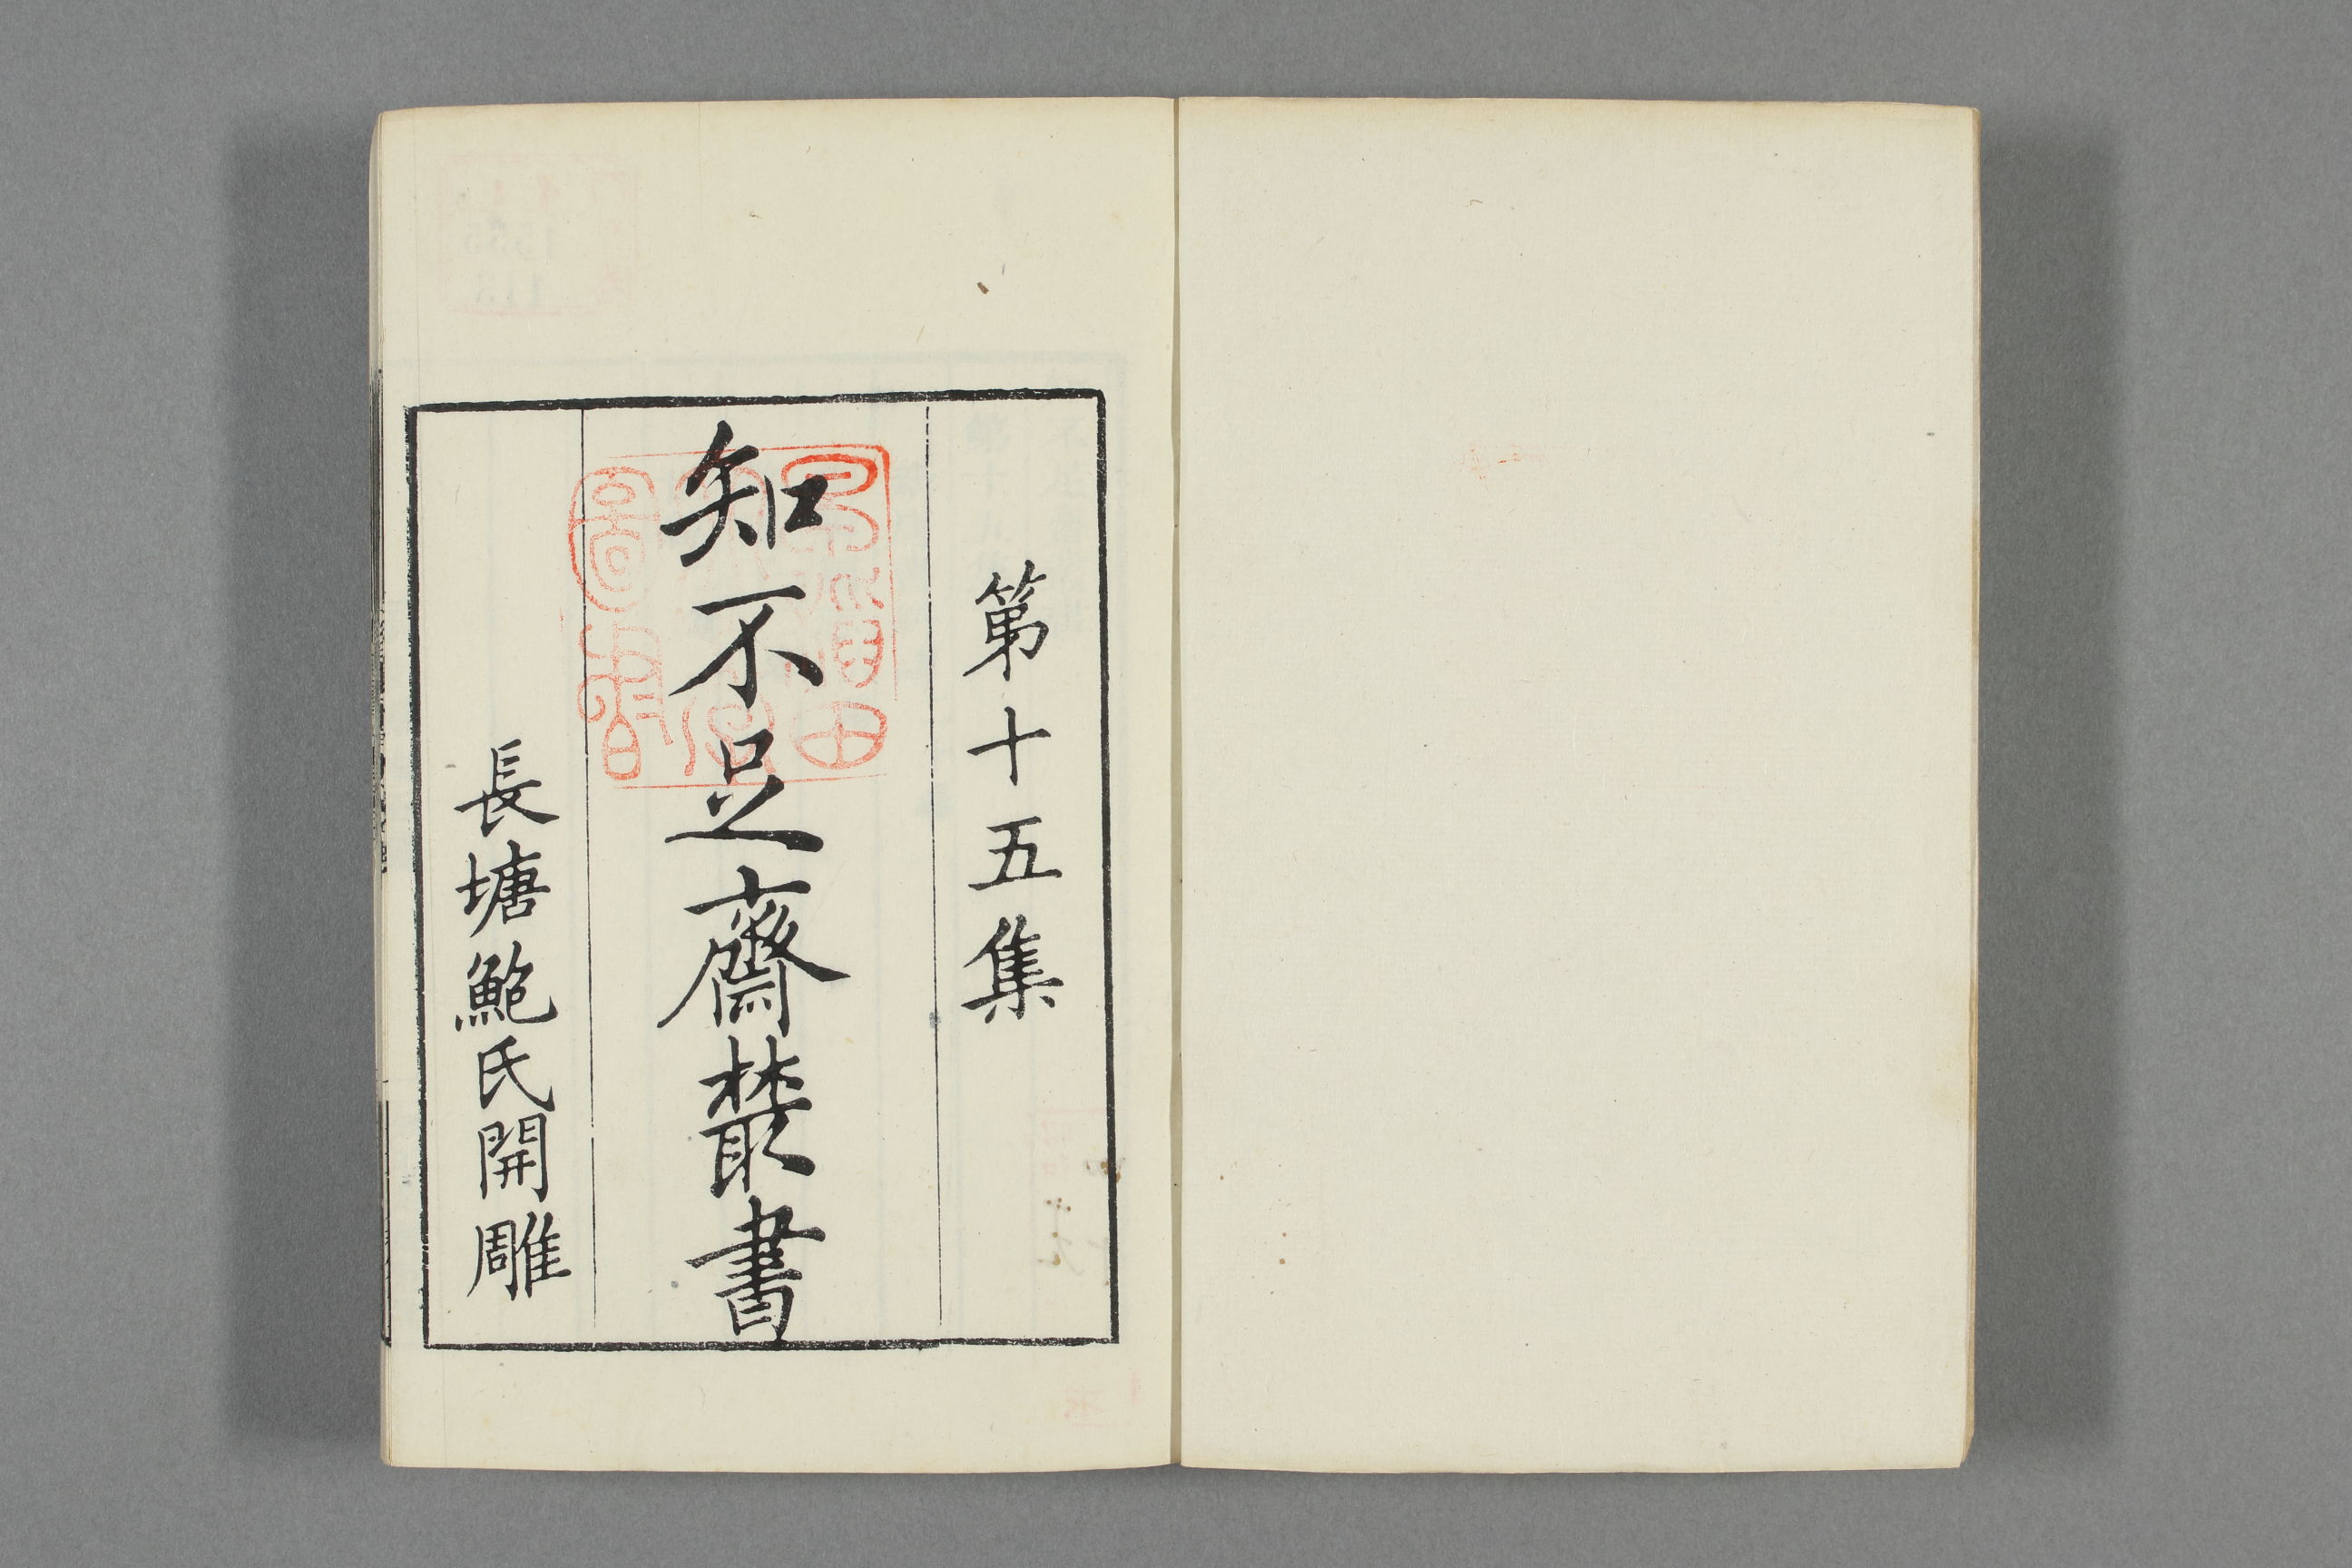 第十五集
知不足齋叢書
長塘鮑氏開雕